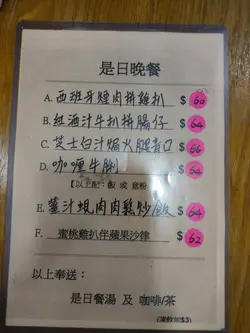 是日晚餐
A. 西班牙煙肉拼雞扒 $ 60
B. 紅酒汁牛扒拼腸仔 $ 64
C. 芝士白汁焗火腿青口 $ 66
D. 咖喱牛腩 $ 64
【以上配：飯 或 意粉】
E. 薑汁蜆肉肉鬆炒飯 $ 64
F. 蜜桃雞扒伴蘋果沙律 $ 62
以上奉送：
是日餐湯 及 咖啡/茶
(凍飲加$3)